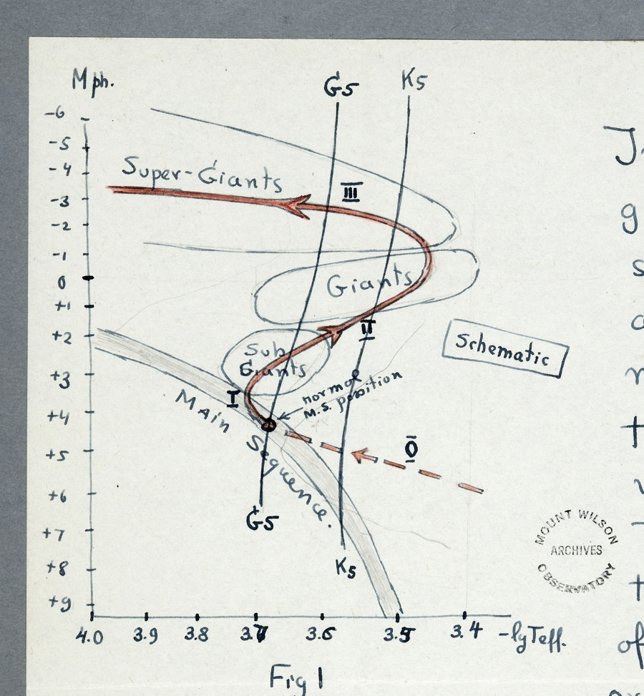 Mph.
G5
K5
-6
-5
-4
-3
-2
-1
0
+1
+2
+3
+4
+5
+6
+7
+8
+9
Super-Giants
III
Giants
II
Sub
Giants
Schematic
I
normal
M.S. position
Main Sequence.
0
G5
K5
MOUNT WILSON
ARCHIVES
OBSERVATORY
4.0 3.9 3.8 3.7 3.6 3.5 3.4 -lgTeff.
Fig 1